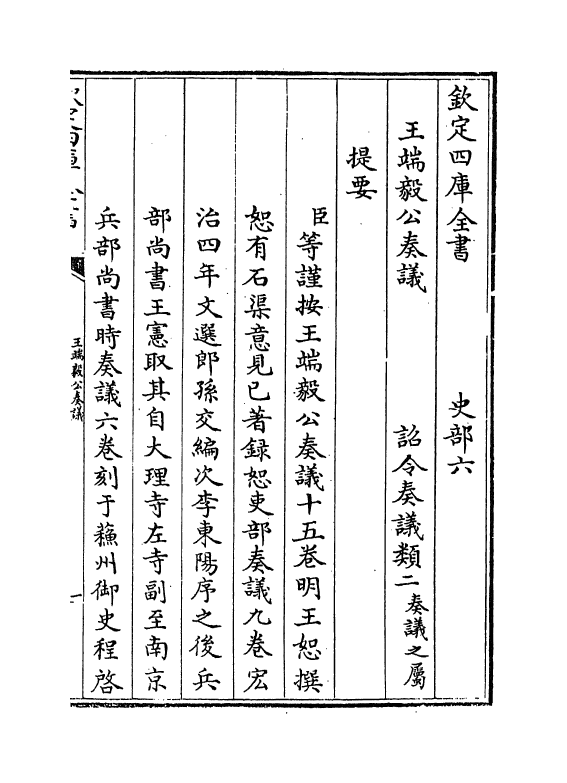 欽定四庫全書　史部六
王端毅公奏議　詔令奏議類二奏議之屬
提要
臣等謹按王端毅公奏議十五卷明王恕撰
恕有石渠意見已著録恕吏部奏議九卷宏
治四年文選郎孫交編次李東陽序之後兵
部尚書王憲取其自大理寺左寺副至南京
兵部尚書時奏議六卷刻于蘓州御史程啓
王端毅公奏議
一